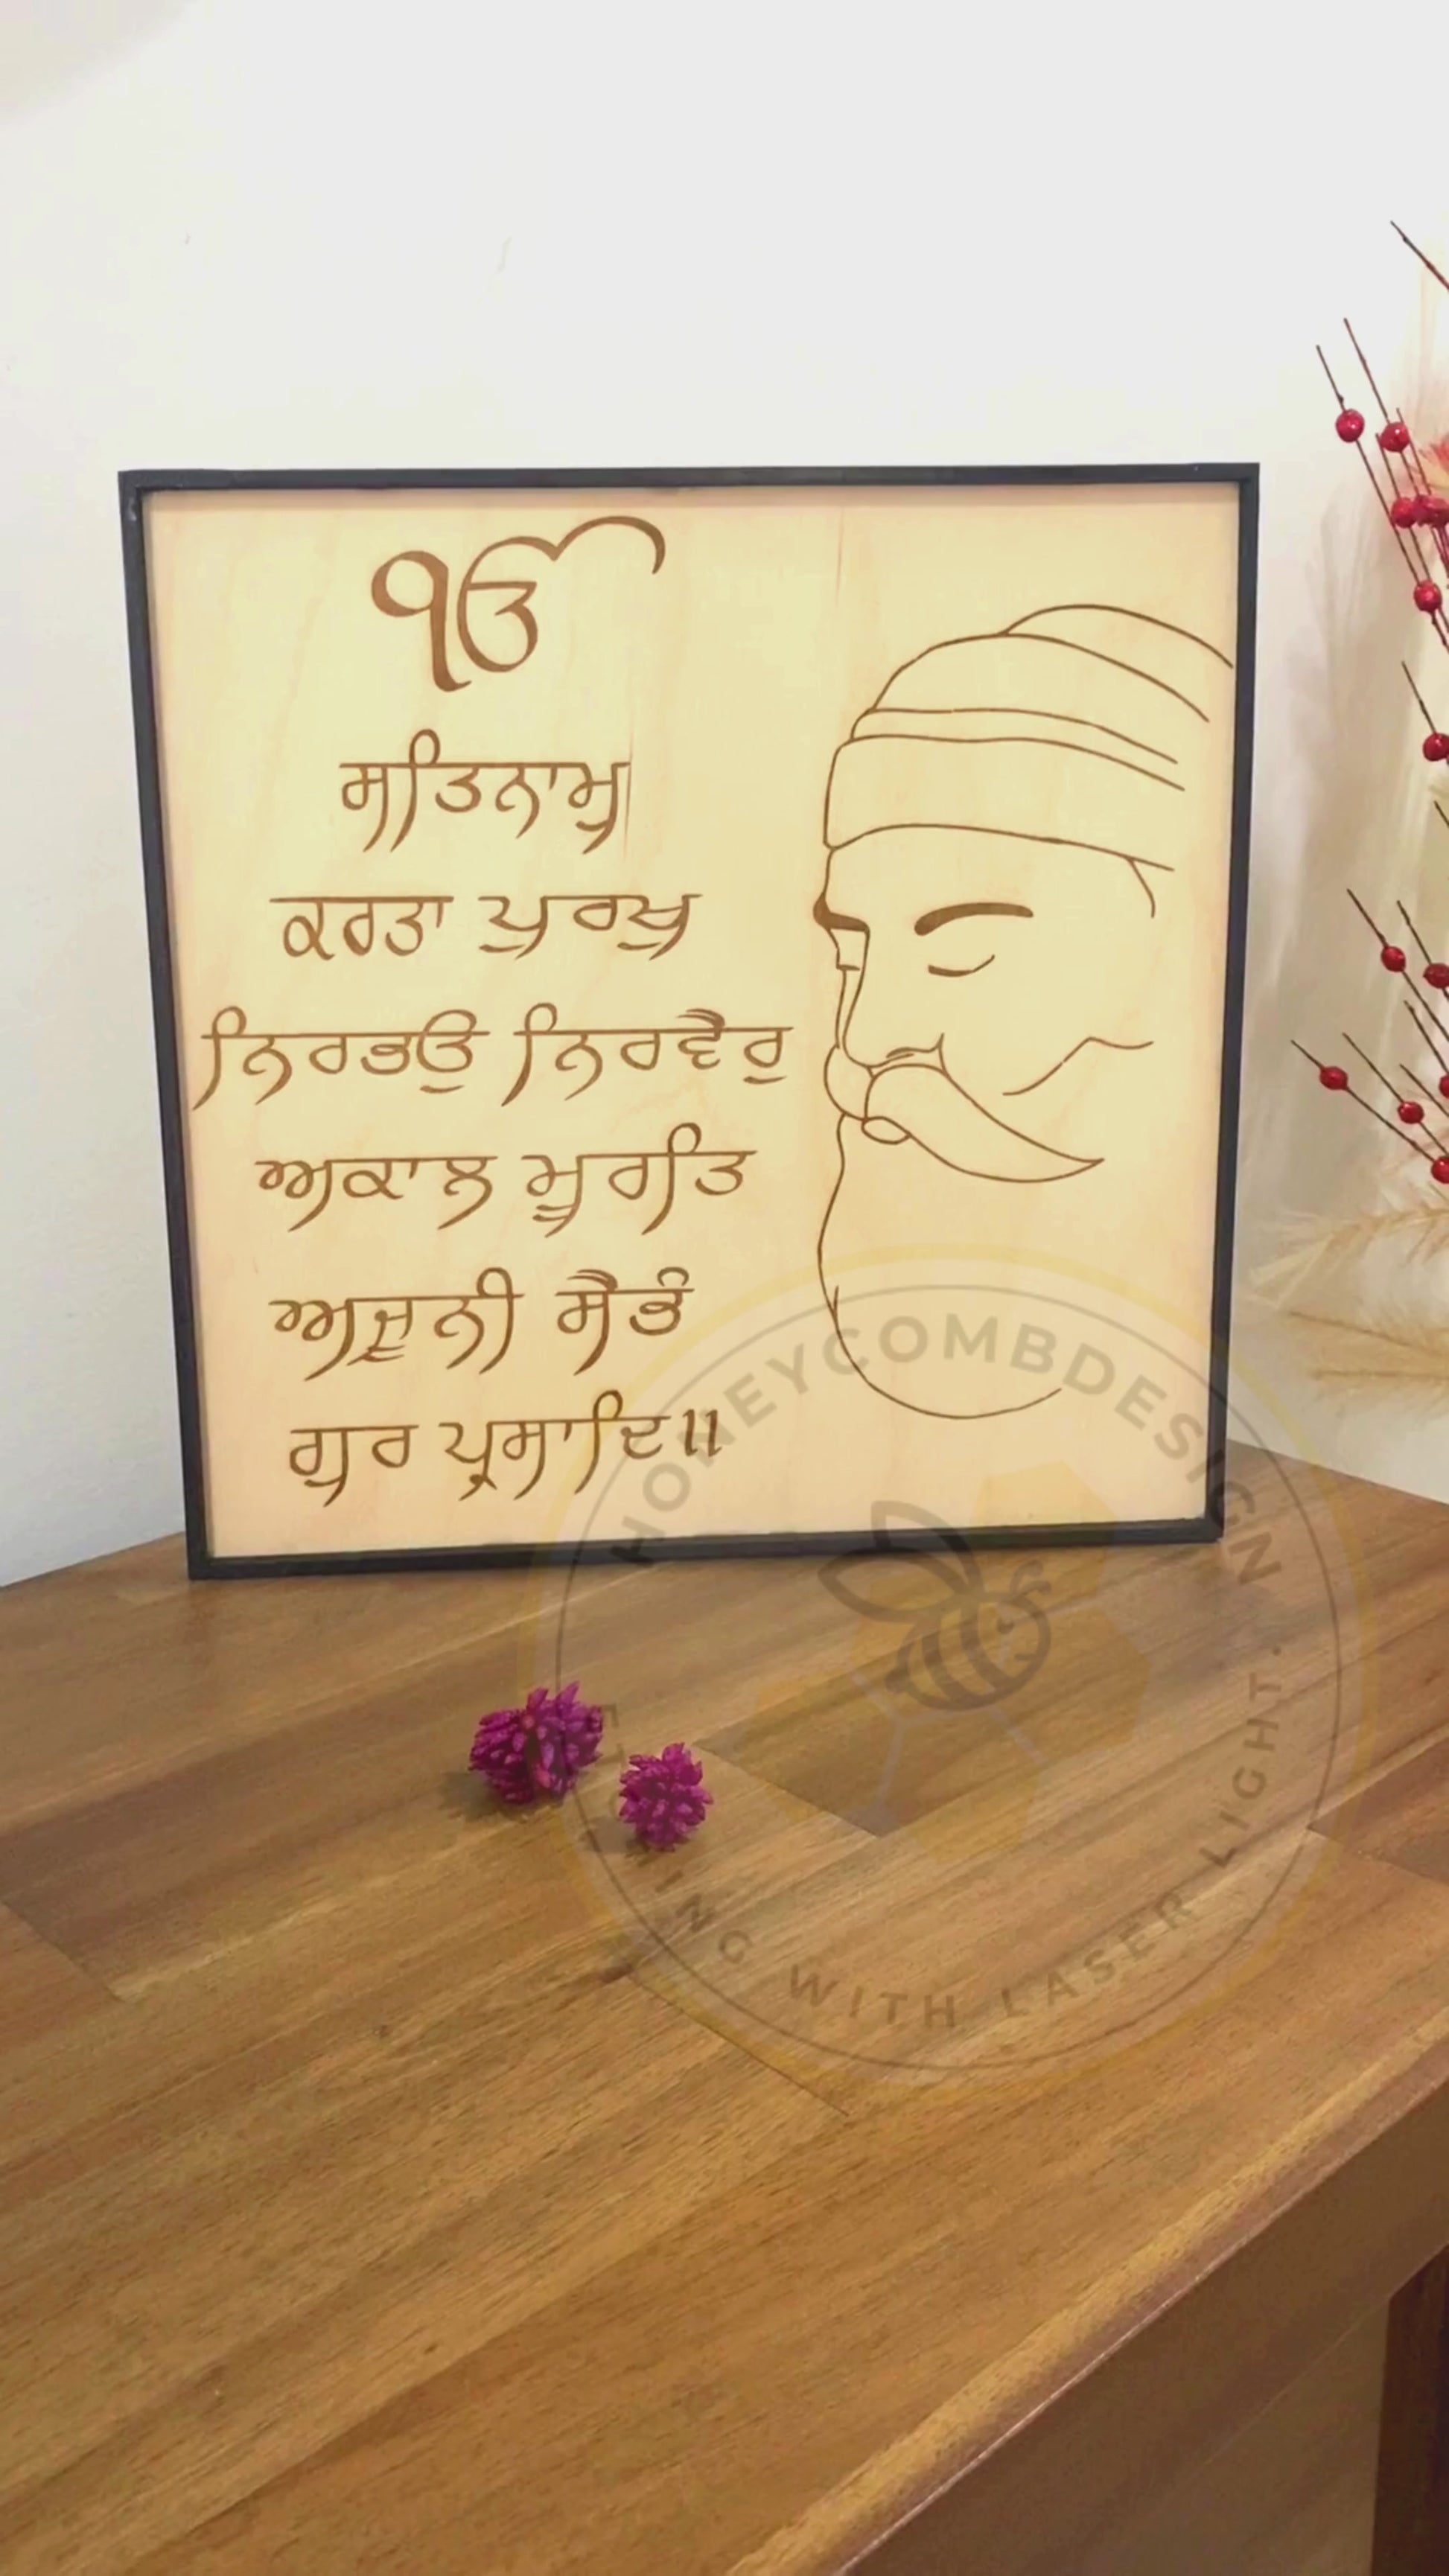 ੴ
ਸਤਿਨਾਮੁ
ਕਰਤਾ ਪੁਰਖੁ
ਨਿਰਭਉ ਨਿਰਵੈਰੁ
ਅਕਾਲ ਮੂਰਤਿ
ਅਜੂਨੀ ਸੈਭੰ
ਗੁਰ ਪ੍ਰਸਾਦਿ॥
HONEYCOMBDESIGN
ETCHING WITH LASER LIGHT.